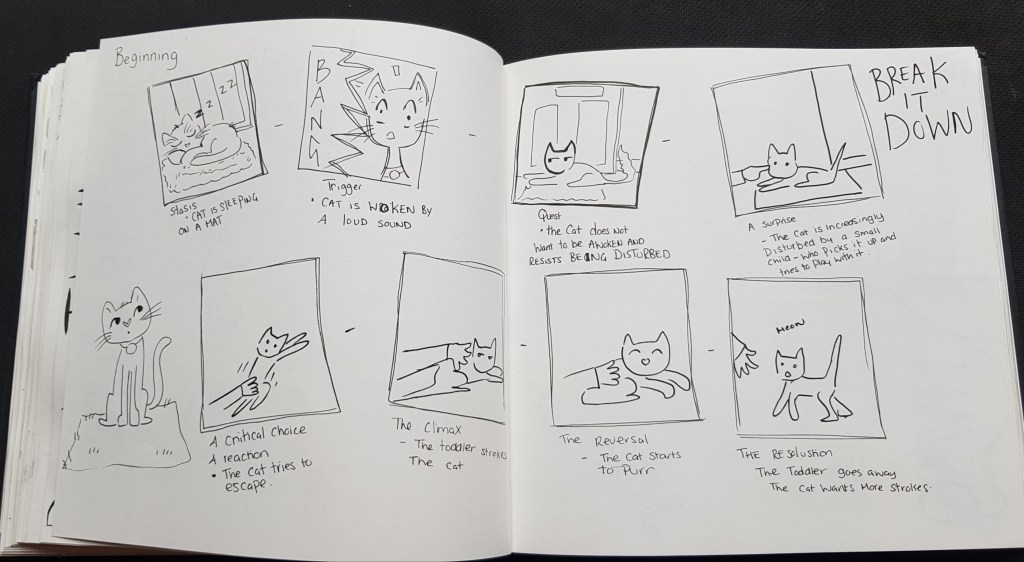 Beginning
z z z z
BANG
Stasis
• CAT IS SLEEPING
ON A MAT
Trigger
• CAT IS WOKEN BY
A LOUD SOUND
Quest
• the Cat does not
want to be AWOKEN AND
RESISTS BEING DISTURBED
A Surprise
- The Cat is Increasingly
Disturbed by a small
child - who Picks it up and
tries to Play with it.
BREAK
IT
DOWN
A Critical Choice
A reaction
• The Cat tries to
escape.
The Climax
- The toddler strokes
The Cat
The Reversal
- The Cat Starts
to Purr
MEOW
THE Resolustion
The Toddler goes away
The Cat wants More strokes.